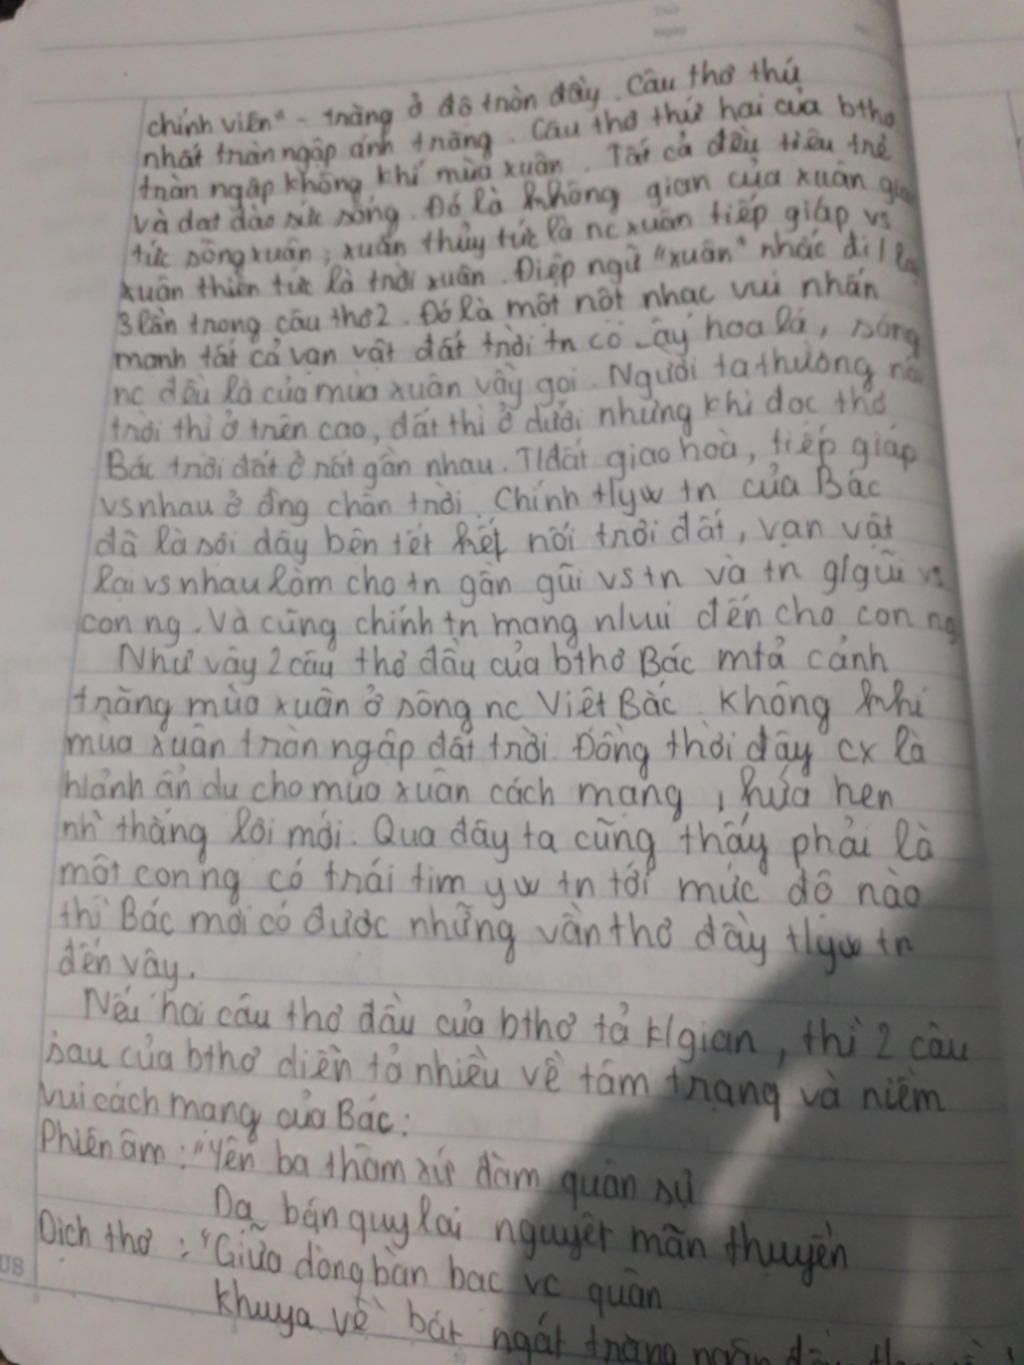 chính viên" - trăng ở độ tròn đầy. Câu thơ thứ
nhất tràn ngập ánh trăng. Câu thơ thứ hai của bthơ
tràn ngập không khí mùa xuân. Tất cả đều tiêu trẻ
và dạt dào sức sống. Đó là không gian của xuân
tức sông xuân; xuân thủy tức là nc xuân tiếp giáp vs
xuân thiên tức là trời xuân. Điệp ngữ "xuân" nhắc đi
3 lần trong câu thơ 2. Đó là một nốt nhạc vui nhấn
mạnh tất cả vạn vật đất trời tn cỏ cây hoa lá, sông
nc đều là của mùa xuân vẫy gọi. Người ta thường
trời thì ở trên cao, đất thì ở dưới nhưng khi đọc thơ
Bác trời đất ở rất gần nhau. T/đất giao hoà, tiếp giáp
vs nhau ở chân trời. Chính t/yw tn của Bác
đã là sợi dây bền kết nối trời đất, vạn vật
lại vs nhau làm cho tn gần gũi vs tn và tn g/gũi vs
con ng. Và cũng chính tn mang n/vui đến cho con ng
Như vậy 2 câu thơ đầu của bthơ Bác mtả cảnh
trăng mùa xuân ở sông nc Việt Bắc. Không khí
mùa xuân tràn ngập đất trời. Đồng thời đây cx là
h/ảnh ẩn dụ cho mùa xuân cách mạng, hứa hẹn
nh` thắng lợi mới. Qua đây ta cũng thấy phải là
một con ng có trái tim yw tn tới mức độ nào
thì Bác mới có được những vần thơ đầy t/yw tn
đến vậy.
Nếu hai câu thơ đầu của bthơ tả k/gian, thì 2 câu
sau của bthơ diễn tả nhiều về tâm trạng và niềm
vui cách mạng của Bác:
Phiên âm: "Yên ba thâm xứ đàm quân sự
Dạ bán quy lai nguyệt mãn thuyền
Dịch thơ: "Giữa dòng bàn bạc vc quân
khuya về bát ngát trăng ngân